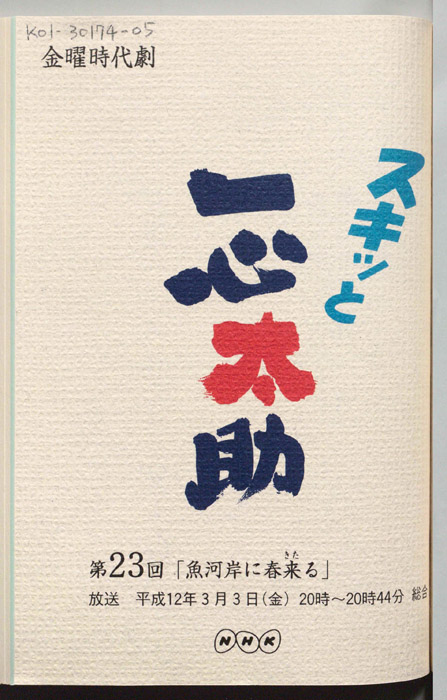 K01-30174-05
金曜時代劇
スキッと
一心太助
第23回「魚河岸に春来る」
きた
放送 平成12年3月3日(金) 20時～20時44分 総合
NHK